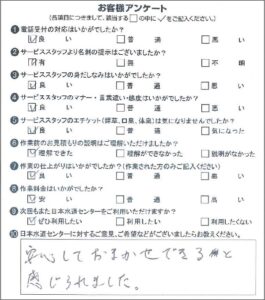 お客様アンケート
(各項目につきまして、該当する□の中に✓をご記入ください。)
①電話受付の対応はいかがでしたか?
☑良い □普通 □悪い
②サービススタッフより名刺の提示はございましたか?
☑有 □無 □不明
③サービススタッフの身だしなみはいかがでしたか?
☑良い □普通 □悪い
④サービススタッフのマナー・言葉遣い・態度はいかがでしたか?
☑良い □普通 □悪い
⑤サービススタッフのエチケット(煙草、口臭、体臭)は気になりませんでしたか?
☑良い □普通 □気になった
⑥作業前のお見積もりの説明はご理解いただけましたか?
☑理解できた □理解ができなかった □説明がなかった
⑦作業の仕上がりはいかがでしたか?(作業された方のみご記入ください)
☑良い □普通 □悪い
⑧作業料金はいかがでしたか?
☑安い □普通 □高い
⑨次回も日本水道センターをご利用いただけますか?
☑ぜひ利用したい □利用したい □利用したくない
⑩日本水道センターに対するご意見、ご希望などがございましたらお教えください。
安心しておまかせできると
感じられました。